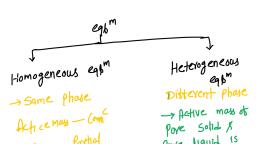 eqb^m
Homogeneous eqb^m
→ Same phase
Active mass — Conc^n
Partial
Heterogeneous
eqb^m
Different phase
→ Active mass of
Pure Solid &
Pure liquid is